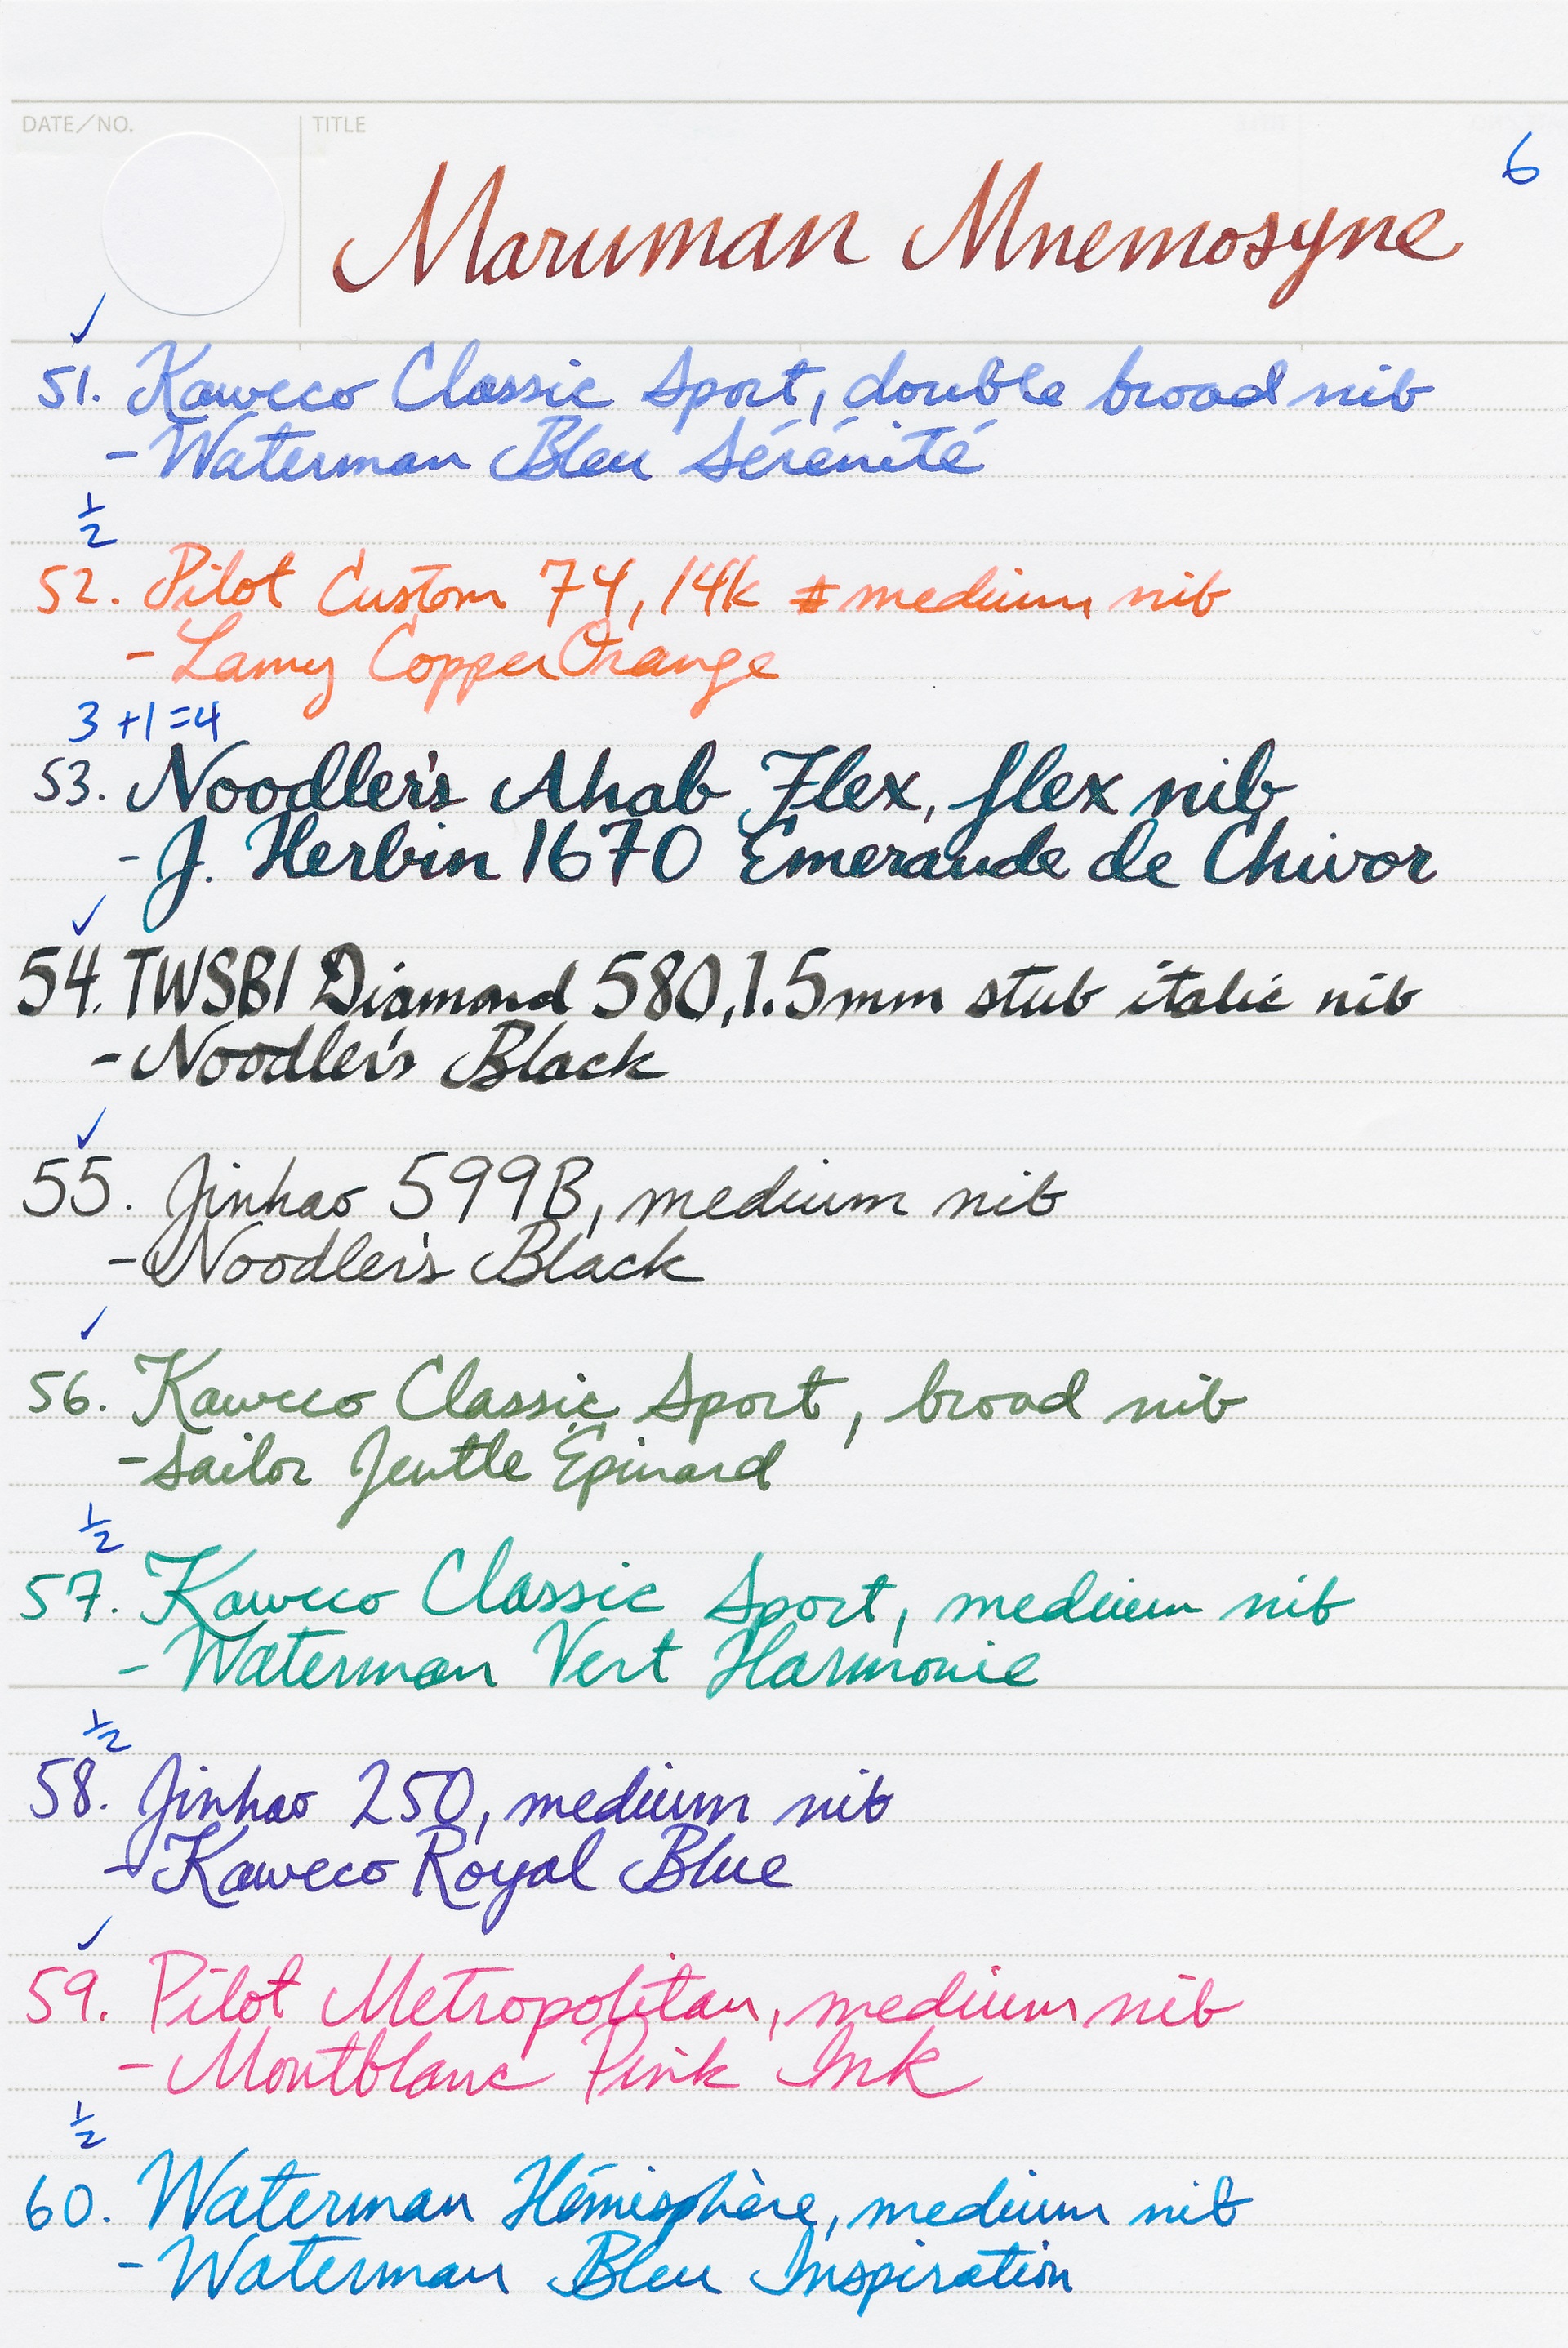 DATE/NO.
TITLE
6
Maruman Mnemosyne
✓
51. Kaweco Classic Sport, double broad nib
- Waterman Bleu Sérénité
1/2
52. Pilot Custom 74, 14k medium nib
- Lamy Copper Orange
3+1=4
53. Noodler's Ahab Flex, flex nib
- J. Herbin 1670 Emeraude de Chivor
✓
54. TWSBI Diamond 580, 1.5mm stub italic nib
- Noodler's Black
✓
55. Jinhao 599B, medium nib
- Noodler's Black
✓
56. Kaweco Classic Sport, broad nib
- Sailor Jentle Épinard
1/2
57. Kaweco Classic Sport, medium nib
- Waterman Vert Harmonie
1/2
58. Jinhao 250, medium nib
- Kaweco Royal Blue
✓
59. Pilot Metropolitan, medium nib
- Montblanc Pink Ink
1/2
60. Waterman Hémisphère, medium nib
- Waterman Bleu Inspiration